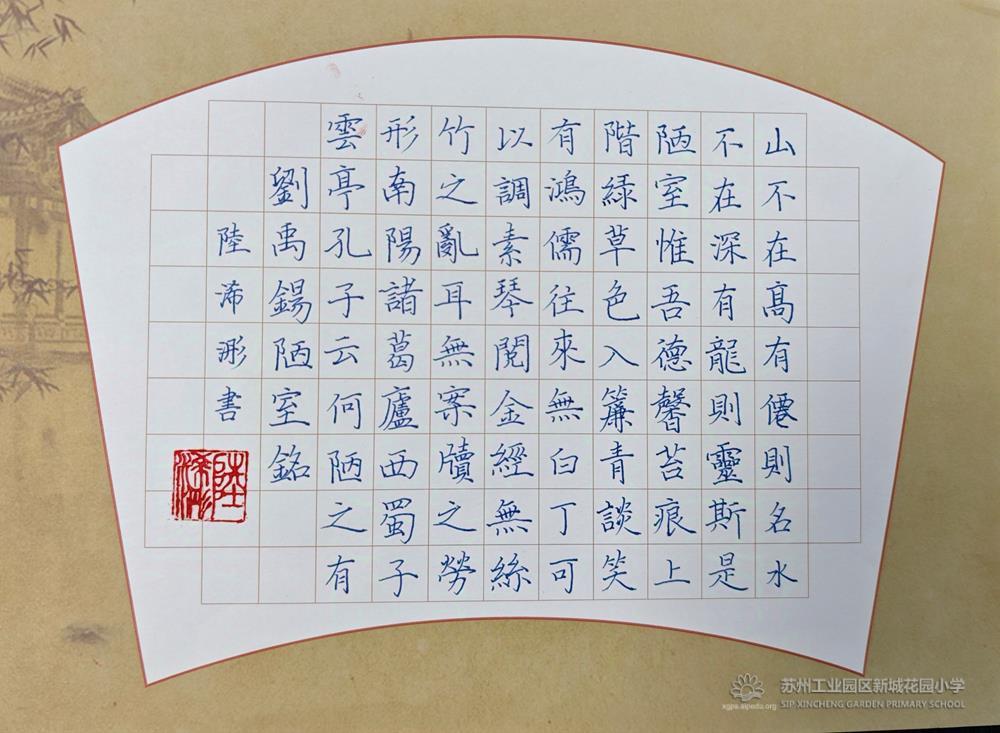 山不在高有僊則名水
不在深有龍則靈斯是
陋室惟吾德馨苔痕上
階綠草色入簾青談笑
有鴻儒往來無白丁可
以調素琴閱金經無絲
竹之亂耳無案牘之勞
形南陽諸葛廬西蜀子
雲亭孔子云何陋之有
劉禹錫陋室銘
陸浠浵書
苏州工业园区新城花园小学
xgps.sipedu.org SIP XINCHENG GARDEN PRIMARY SCHOOL